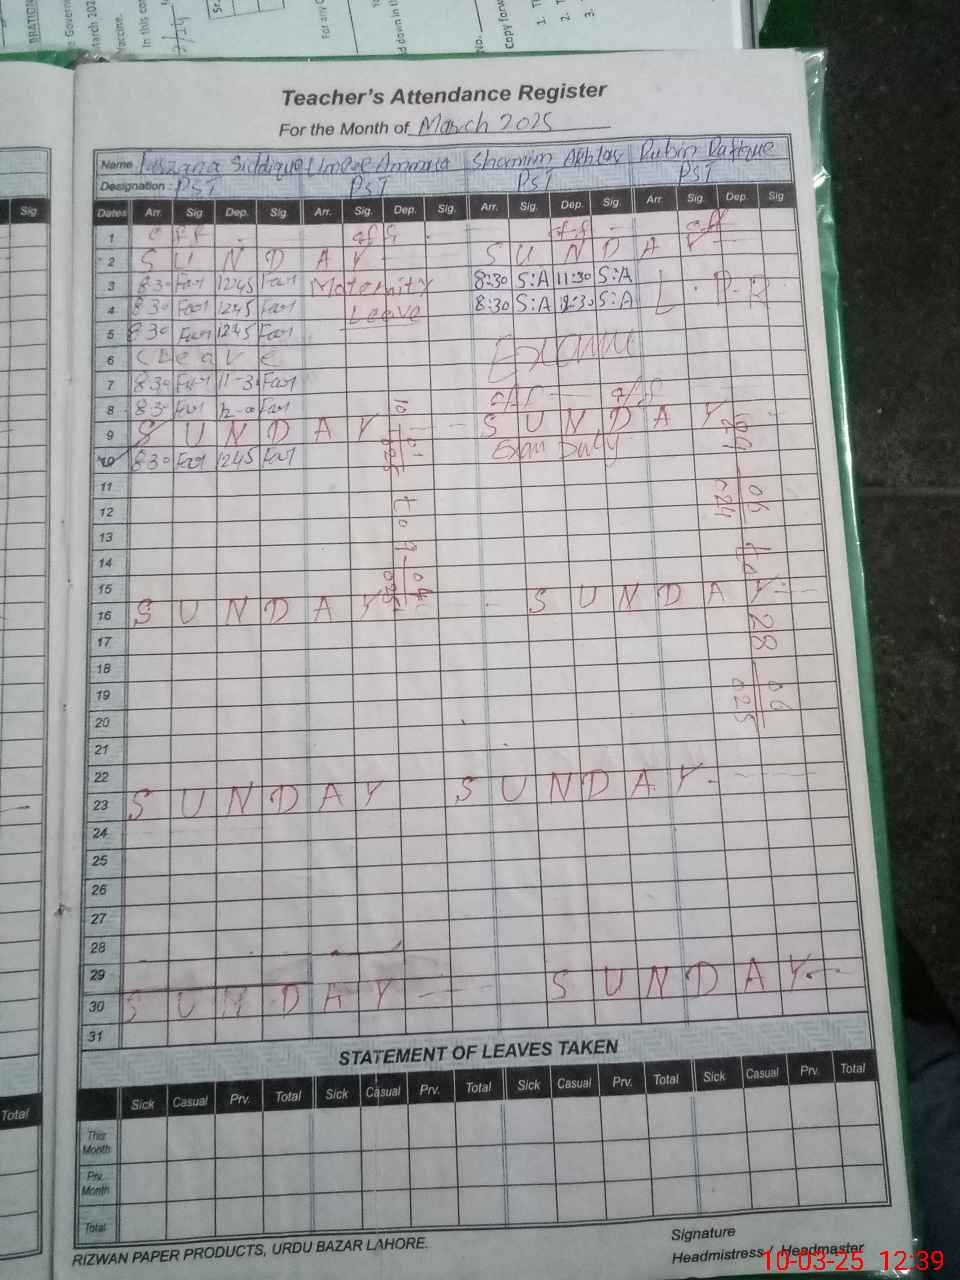 Teacher's Attendance Register
For the Month of March 2025
Name Siddique Shamim Akhtar Rubin
Designation : PST PST PST PST
Sig Dates Arr. Sig. Dep. Sig. Arr. Sig. Dep. Sig. Arr. Sig. Dep. Sig Arr. Sig. Dep. Sig
1 off off off off
2 S U N D A Y S U N D A Y
3 8:30 Far 1245 Far Maternity 8:30 S:A 11:30 S:A L.P.R
4 8:30 Far 1245 Far Leave 8:30 S:A S:A
5 8:30 Far 1245 Far
6 Leave Exam
7 8:30 Far 11-3 Far
8 8:30 Far Far off off
9 S U N D A Y S U N D A Y
10 8:30 Far 1245 Far Exam Duty
11
12
13
14
15
16 S U N D A Y S U N D A Y
17
18
19
20
21
22
23 S U N D A Y S U N D A Y
24
25
26
27
28
29
30 S U N D A Y S U N D A Y
31
STATEMENT OF LEAVES TAKEN
Total Sick Casual Prv. Total Sick Casual Prv. Total Sick Casual Prv. Total Sick Casual Prv. Total
This Month
Prv. Month
Total
RIZWAN PAPER PRODUCTS, URDU BAZAR LAHORE.
Signature
Headmistress / Headmaster
10-03-25 12:39